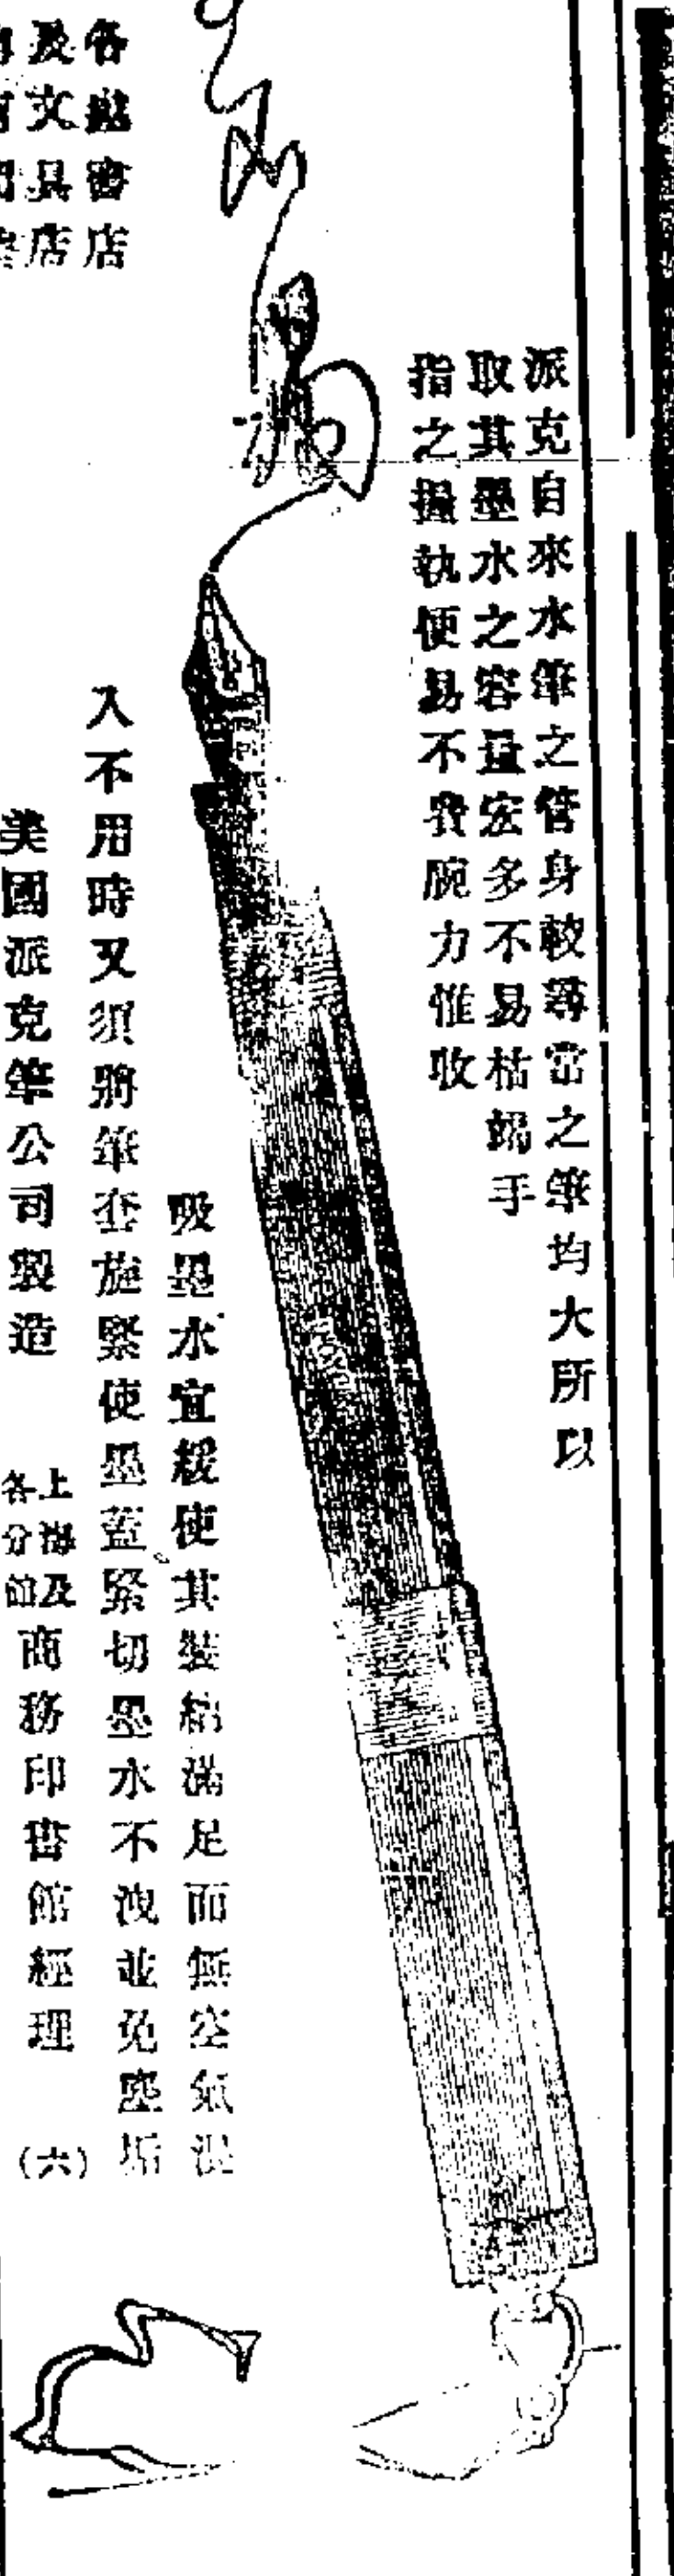 派克自來水筆之管身較尋常之筆均大所以
取其墨水之容量宏多不易枯竭手
指之握執便易不費腕力惟收
竭
吸墨水宜緩使其裝給滿足而無空氣混
入不用時又須將筆套旋緊使墨蓋緊切墨水不洩並免塵垢
美國派克筆公司製造
上海及
各分館
商務印書館經理
(六)
各處書店
及文具店